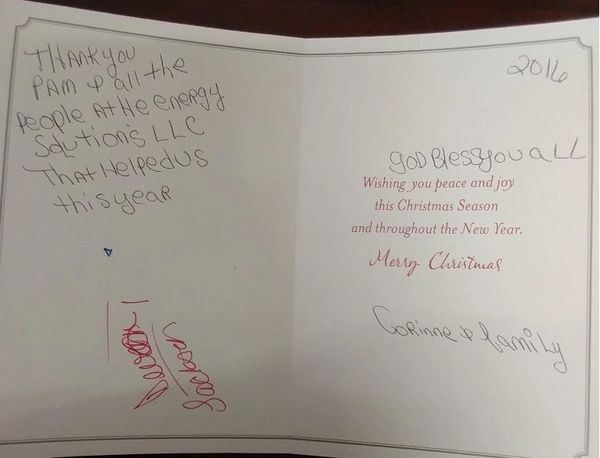 THANK you
PAM & all the
people AtHe eneRgy
Solutions LLC
THAt Helped us
this yeaR
2016
goD Bless you aLL
Wishing you peace and joy
this Christmas Season
and throughout the New Year.
Merry Christmas
CoRinne & family